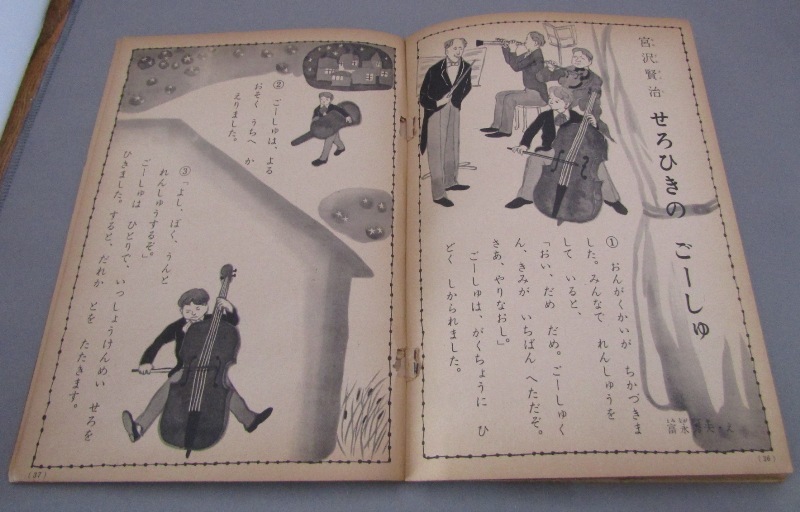 宮沢賢治
せろひきの ごーしゅ
① おんがくかいが ちかづきま
した。みんなで れんしゅうを
して いると、
「おい、だめ だめ。ごーしゅく
ん、きみが いちばん へただぞ。
さあ、やりなおし。」
ごーしゅは、がくちょうに ひ
どく しかられました。
富永
え
(36)
② ごーしゅは、よる
おそく うちへ か
えりました。
③「よし、ぼく、うんと
れんしゅうするぞ。」
ごーしゅは ひとりで、いっしょうけんめい せろを
ひきました。すると、だれか とを たたきます。
(37)